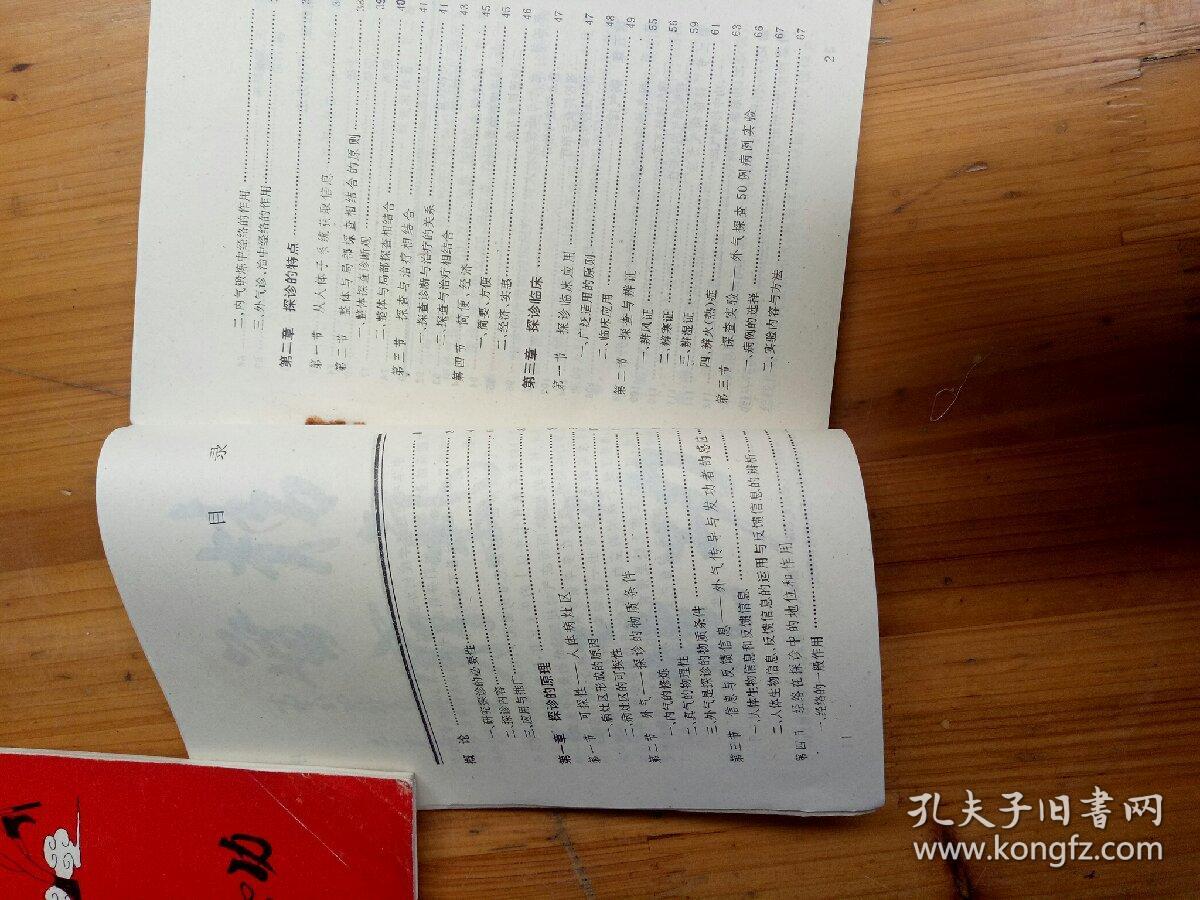 目 录
概 论 1
一、研究探诊的必要性
二、探诊内容
三、应用与推广
第一章 探诊的原理
第一节 可探性——人体病灶区
一、病灶区形成的原因
二、病灶区的可探性
第二节 外气——探诊的物质条件
一、内气的修炼
二、真气的物理性
三、外气是探诊的物质条件
第三节 信息与反馈信息——外气传导与发功者的感应
一、人体生物信息和反馈信息
二、人体生物信息、反馈信息的运用与反馈信息的辨析
第四节 经络在探诊中的地位和作用
一、经络的一般作用
1
二、内气锻炼中经络的作用
三、外气诊、治中经络的作用
第二章 探诊的特点
第一节 从人体子系统获取信息
第二节 整体与局部探查相结合的原则
一、整体探查诊断观 39
二、整体与局部探查相结合 40
第三节 探查与治疗相结合 41
一、探查诊断与治疗的关系 41
二、探查与治疗相结合 43
第四节 简便、经济 45
一、简要、方便 45
二、经济、实惠 46
第三章 探诊临床 47
第一节 探诊临床应用 47
一、广泛适用的原则 48
二、临床应用 49
第二节 探查与辨证 55
一、辨风证 56
二、辨寒证 59
三、辨湿证 61
四、辨火(热)症 63
第三节 探查实验——外气探查50例病例实验 66
一、病例的选择 67
二、实验内容与方法 67
2
功
孔夫子旧书网
www.kongfz.com